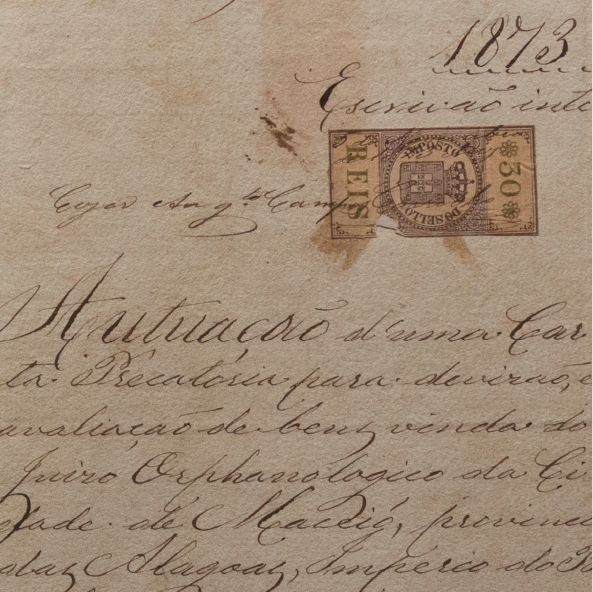 1873
Escrivão inte
REIS IMPOSTO DO SELLO 30
Autuação d'uma Car
ta Precatória para devizão, e
avaliação de bens vinda do
Juizo Orphanologico da Ci
dade de Maceió, provinci
das Alagoas, Imperio do